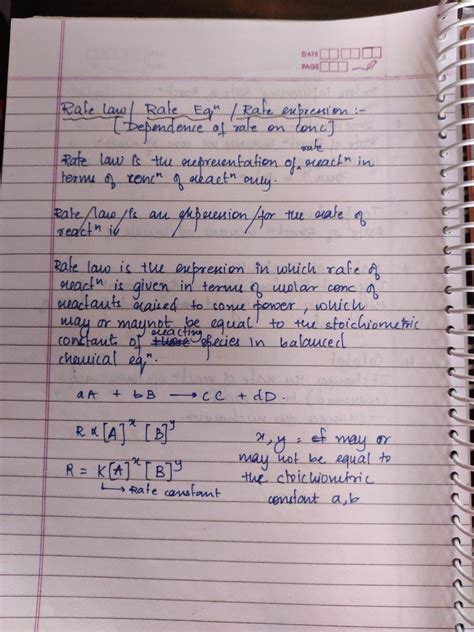 DATE
PAGE
Rate law / Rate Eqⁿ / Rate expression :-
[Dependence of rate on conc]
rate
Rate law is the representation of reactⁿ in
terms of concⁿ of reactⁿ only.
Rate/law/is an expression/for the rate of
reactⁿ is
Rate law is the expression in which rate of
reactⁿ is given in terms of molar conc of
reactants raised to some power, which
may or maynot be equal to the stoichiometric
reacting
constant of these species in balanced
chemical eqⁿ.
aA + bB ⟶ cC + dD.
R ∝ [A]ˣ [B]ʸ
R = K[A]ˣ [B]ʸ
↳ Rate constant
x, y = may or
may not be equal to
the stoichiometric
constant a, b